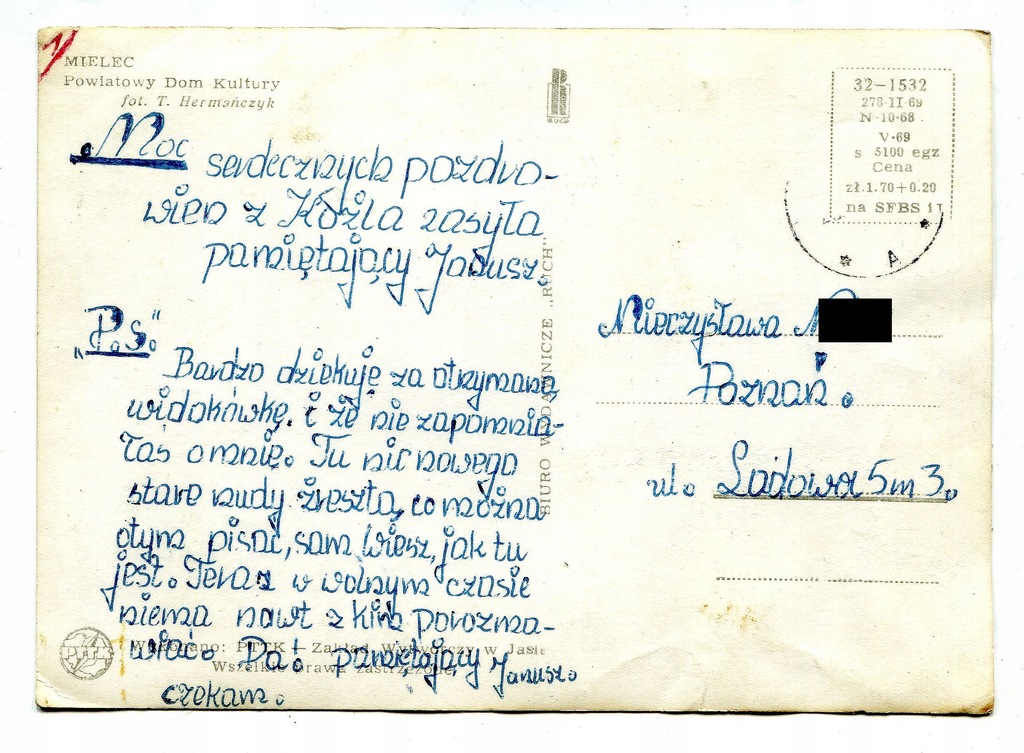 MIELEC
Powiatowy Dom Kultury
fot. T. Hermończyk
„Moc
serdecznych pozdro-
wień z Koźla zasyła
pamiętający Janusz.
„P.S."
Bardzo dziękuję za otrzymaną
widokówkę. i że nie zapomnia-
łaś o mnie. Tu nic nowego
stare nudy zreszta, co można
otym pisać, sam wiesz, jak tu
jest. Teraz w wolnym czasie
niema nawt z kim porozma-
wiać. Pa! pamiętający Janusz.
czekam.
Wykonano: PTTK — Zakład Wytwórczy w Jaśle
Wszelkie prawa zastrzeżone
PTTK
BIURO WYDAWNICZE „RUCH"
RUCH
32-1532
278-II-69
N-10-68.
V-69
s 5100 egz
Cena
zł.1.70+0.20
na SFBS 1T
A
Mieczysława
Poznań.
ul. Ladowa 5 m 3.